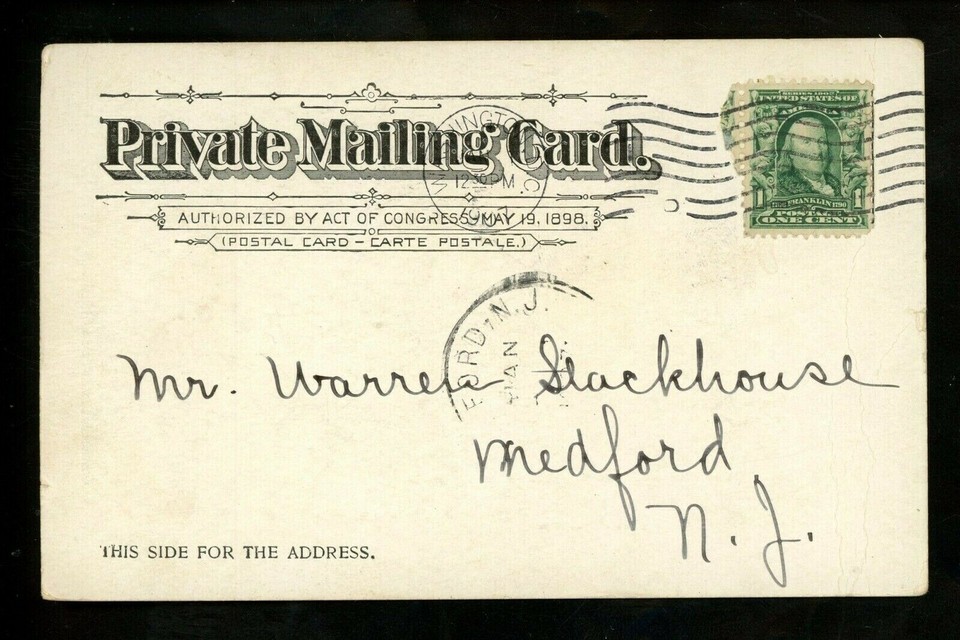 Private Mailing Card.
AUTHORIZED BY ACT OF CONGRESS, MAY 19, 1898.
(POSTAL CARD – CARTE POSTALE.)
WASHINGTON
12 PM
SERIES 1902
UNITED STATES OF
AMERICA
FRANKLIN
POSTAGE
1 ONE CENT 1
FORD, N.J.
JAN
Mr. Warren Stackhouse
Medford
N. J.
THIS SIDE FOR THE ADDRESS.